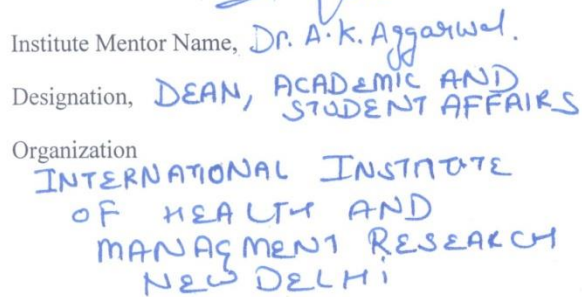 Institute Mentor Name, Dr. A.K. Aggarwal.
Designation, DEAN, ACADEMIC AND
STUDENT AFFAIRS
Organization
INTERNATIONAL INSTITUTE
OF HEALTH AND
MANAGMENT RESEARCH
NEW DELHI